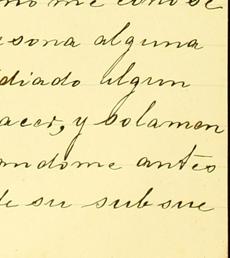 no me cono se
rsona alguna
diado algun
acer, y solamen
andome antes
de su subsue